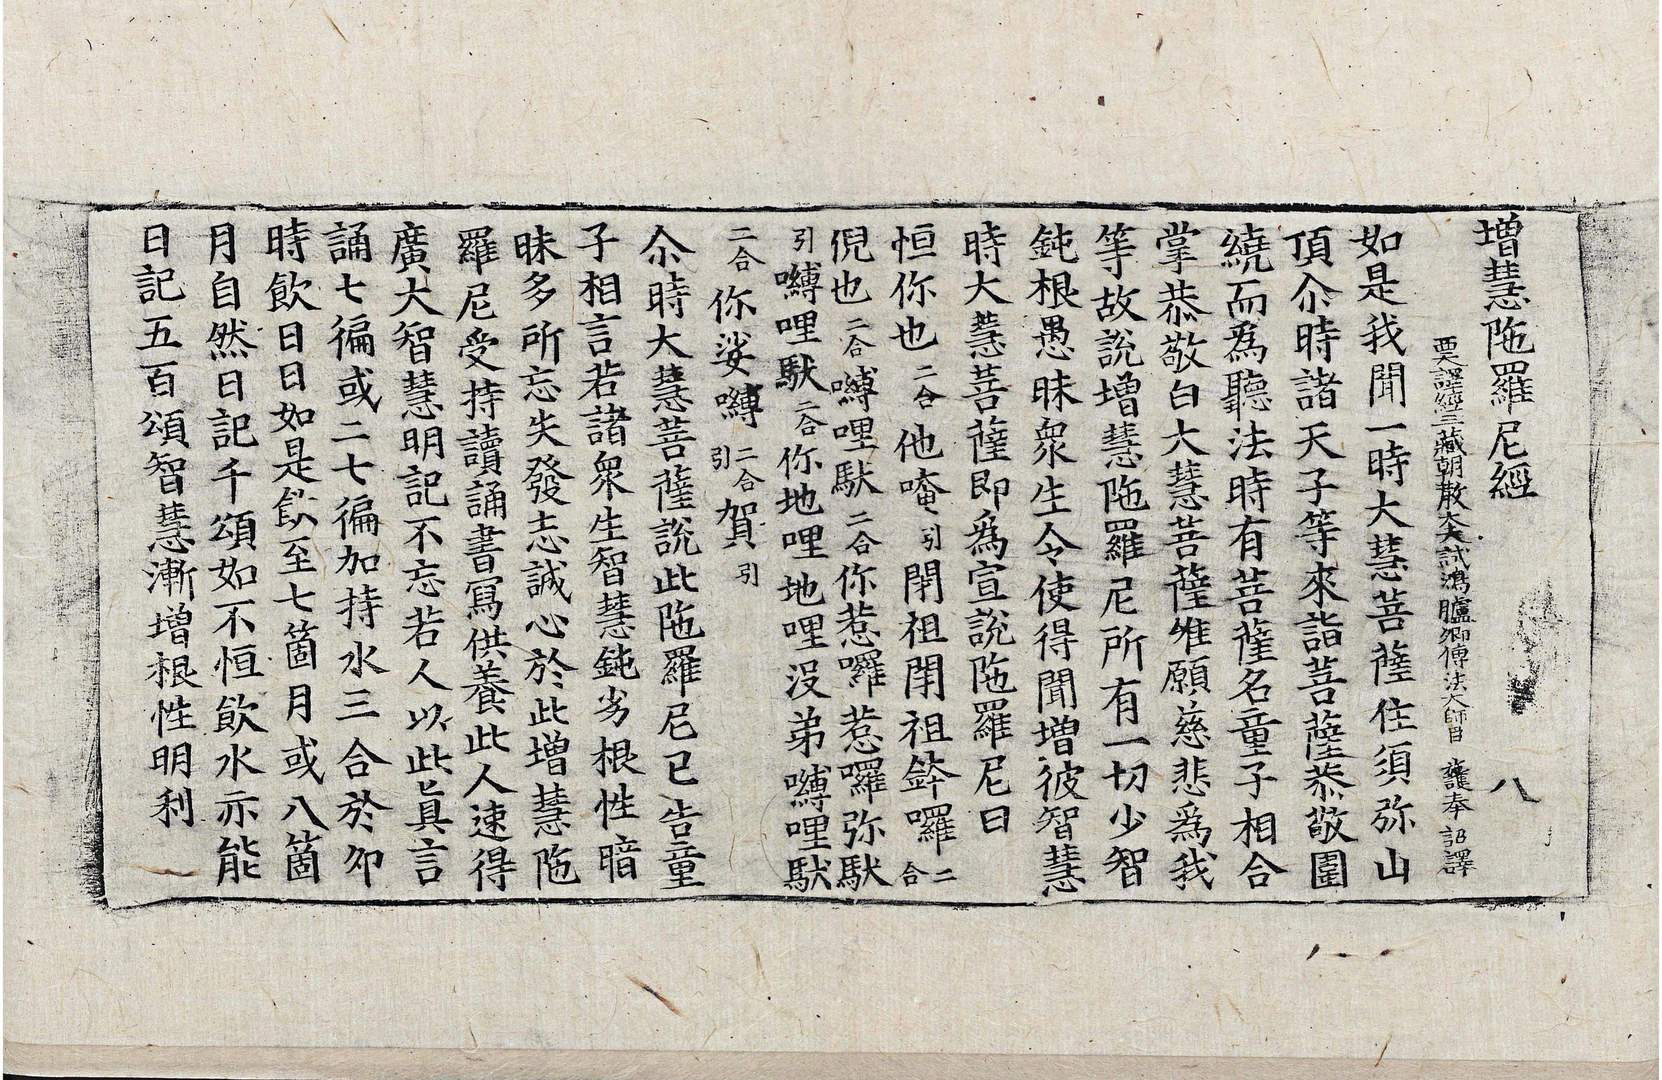 增慧陁羅尼經 八
西天譯經三藏朝散大夫試鴻臚卿傳法大師臣 護奉 詔譯
如是我聞一時大慧菩薩住須弥山
頂尒時諸天子等來詣菩薩恭敬圍
繞而爲聽法時有菩薩名童子相合
掌恭敬白大慧菩薩惟願慈悲爲我
等故說增慧陁羅尼所有一切少智
鈍根愚昧衆生令使得聞增彼智慧
時大慧菩薩即爲宣說陁羅尼曰
怛你也二合他唵引閉祖閉祖鉢囉二合
倪也二合嚩哩馱二合你惹囉惹囉弥馱
引嚩哩馱二合你地哩地哩沒弟嚩哩馱
二合你娑嚩二合引賀引
尒時大慧菩薩說此陁羅尼已告童
子相言若諸衆生智慧鈍劣根性暗
昧多所忘失發志誠心於此增慧陁
羅尼受持讀誦書寫供養此人速得
廣大智慧明記不忘若人以此眞言
誦七徧或二七徧加持水三合於夘
時飲日日如是飲至七箇月或八箇
月自然日記千頌如不恒飲水亦能
日記五百頌智慧漸增根性明利